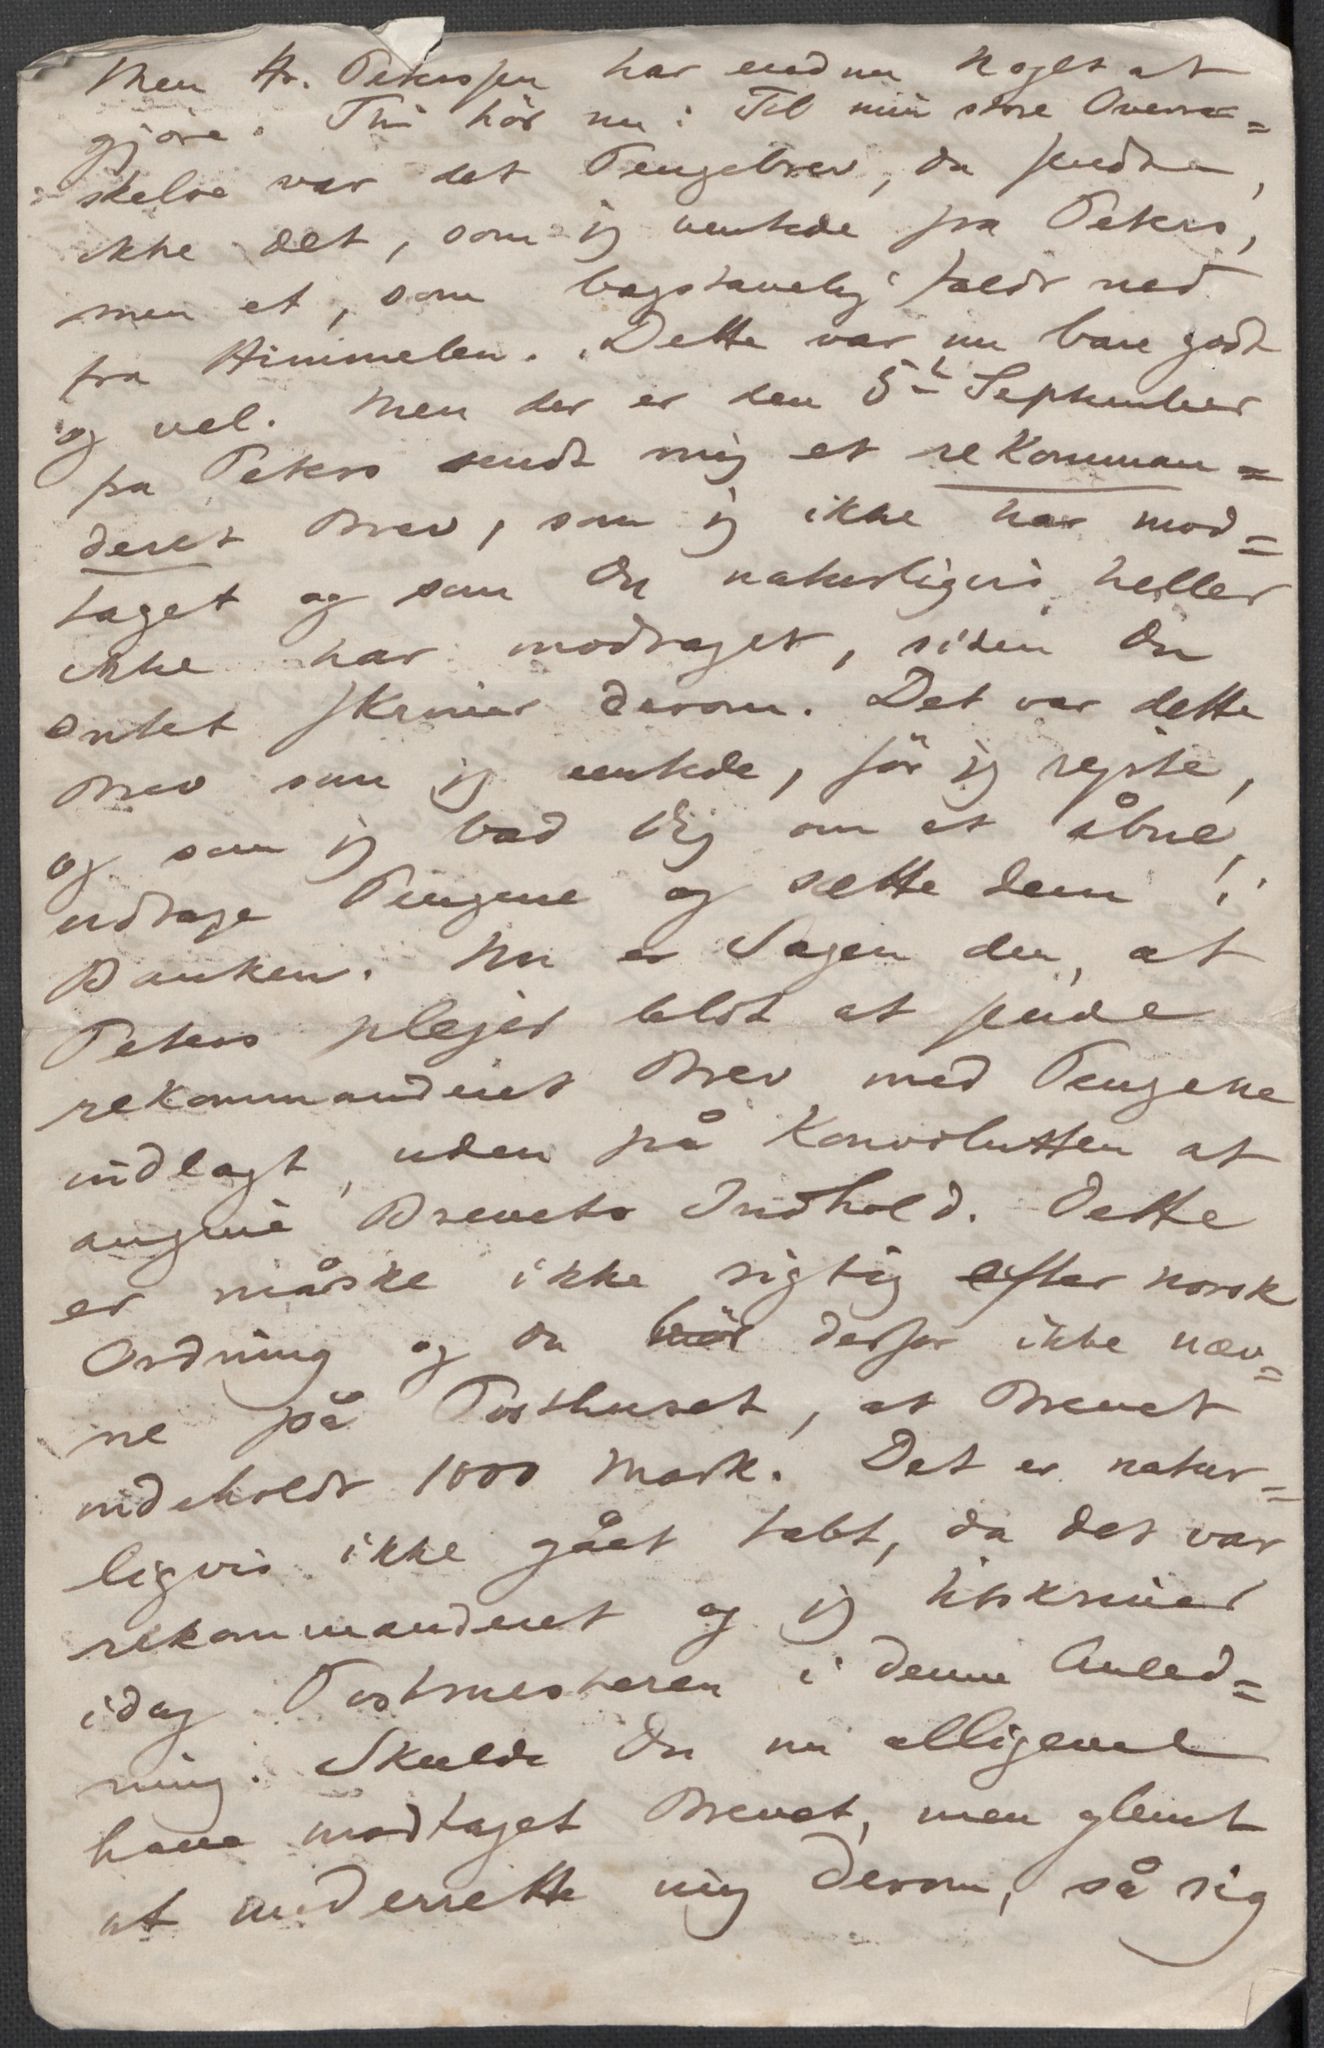 Men Hr. Petersen har endnu Noget at
gjøre. Thi hör nu: Til min store Overra=
skelse var det Pengebrev, du sendte,
ikke det, som jeg ventede fra Peters,
men et, som bogstavelig faldt ned
fra Himmelen. Dette var nu bare godt
og vel. Men der er den 5te September
fra Peters sendt mig et rekomman=
deret Brev, som jeg ikke har mod=
taget og som Du naturligvis heller
ikke har modtaget, siden Du
intet skriver derom. Det var dette
Brev som jeg ventede, för jeg rejste,
og som jeg bad Dig om at åbne,
udtage Pengene og sætte dem i
Banken. Nu er Sagen den, at
Peters plejer blot at sende
rekommanderet Brev med Pengene
indlagt, uden på Konvolutten at
angive Brevets Indhold. Dette
er måske ikke rigtig efter norsk
Ordning og du bör derfor ikke næv=
ne på Posthuset, at Brevet
indeholdt 1000 Mark. Det er natur=
ligvis ikke gået tabt, da det var
rekommanderet og jeg tilskriver
idag Postmesteren i denne Anled=
ning. Skulde Du nu alligevel
have modtaget Brevet, men glemt
at underrette mig derom, så sig